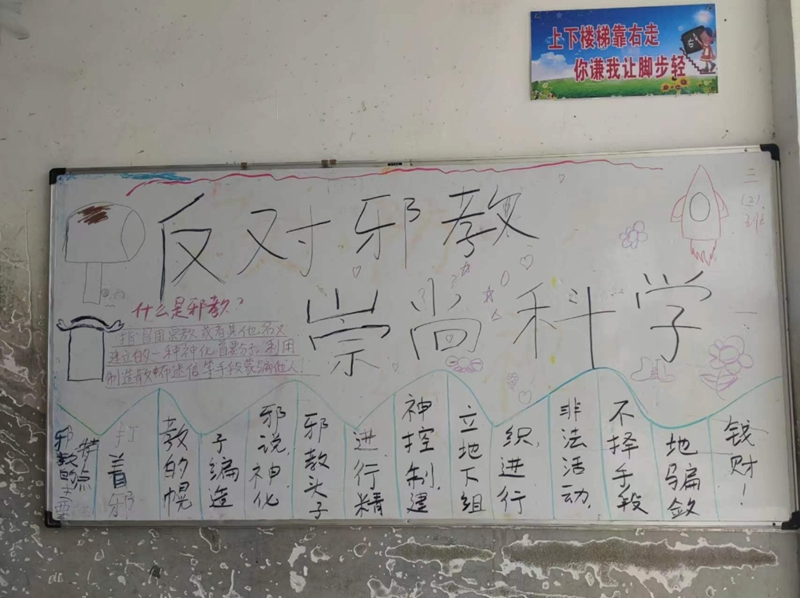 上下楼梯靠右走
你谦我让脚步轻
反对邪教
崇尚科学
二(2)班
什么是邪教?
指冒用宗教或者其他名义
建立的一种神化首要分子利用
制造散布迷信等手段蒙骗他人!
邪教的主要
特点
打着邪
教的幌
子编造
邪说,神化
邪教头子
进行精
神控制,建
立地下组
织,进行
非法活动,
不择手段
地骗敛
钱财!